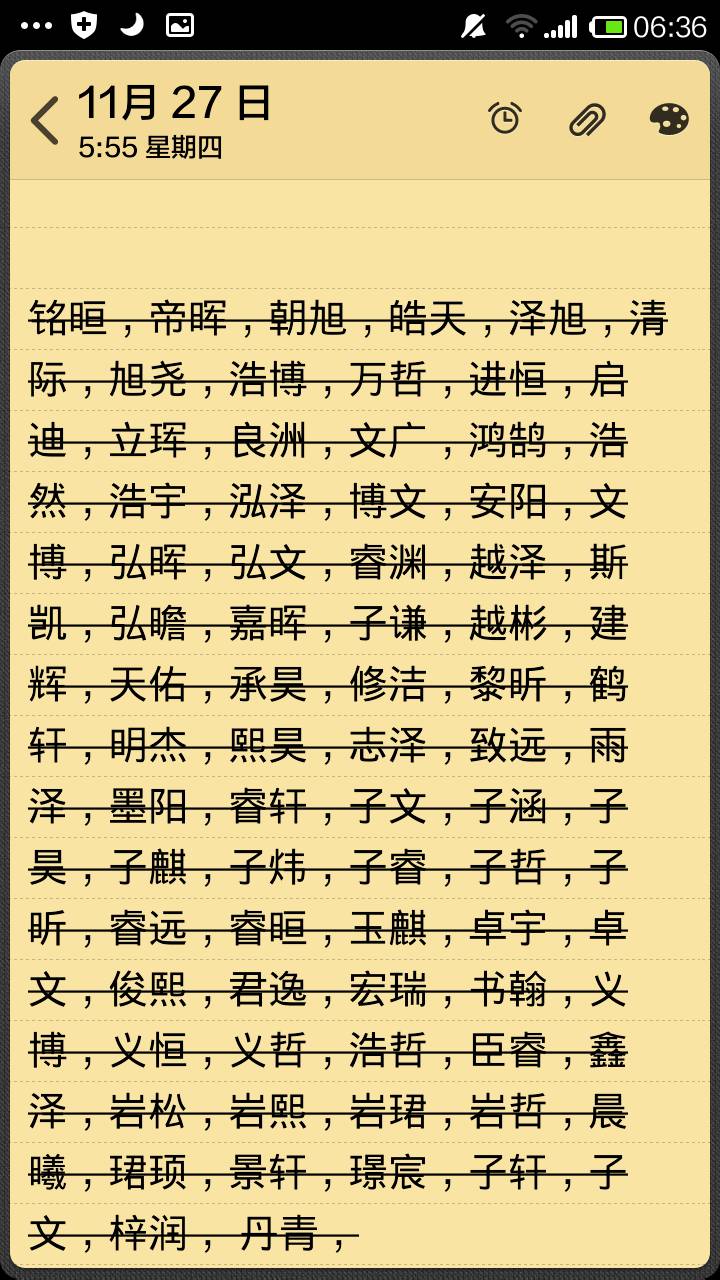 06:36
11月 27 日
5:55 星期四
铭晅，帝晖，朝旭，皓天，泽旭，清
际，旭尧，浩博，万哲，进恒，启
迪，立珲，良洲，文广，鸿鹄，浩
然，浩宇，泓泽，博文，安阳，文
博，弘晖，弘文，睿渊，越泽，斯
凯，弘瞻，嘉晖，子谦，越彬，建
辉，天佑，承昊，修洁，黎昕，鹤
轩，明杰，熙昊，志泽，致远，雨
泽，墨阳，睿轩，子文，子涵，子
昊，子麒，子炜，子睿，子哲，子
昕，睿远，睿晅，玉麒，卓宇，卓
文，俊熙，君逸，宏瑞，书翰，义
博，义恒，义哲，浩哲，臣睿，鑫
泽，岩松，岩熙，岩珺，岩哲，晨
曦，珺顼，景轩，璟宸，子轩，子
文，梓润， 丹青，